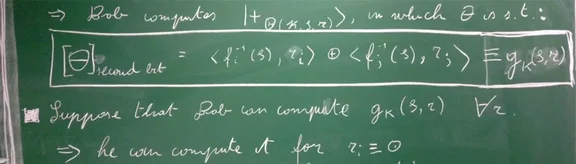 ⇒ Bob computes |+_θ(k,s,r)⟩, in which θ is s.t.:
[θ]_second bit = ⟨f_i^{-1}(s), r_i⟩ ⊕ ⟨f_j^{-1}(s), r_j⟩ ≡ g_K(s,r)
Suppose that Bob can compute g_K(s,r) ∀r.
⇒ he can compute it for r_i ≡ 0